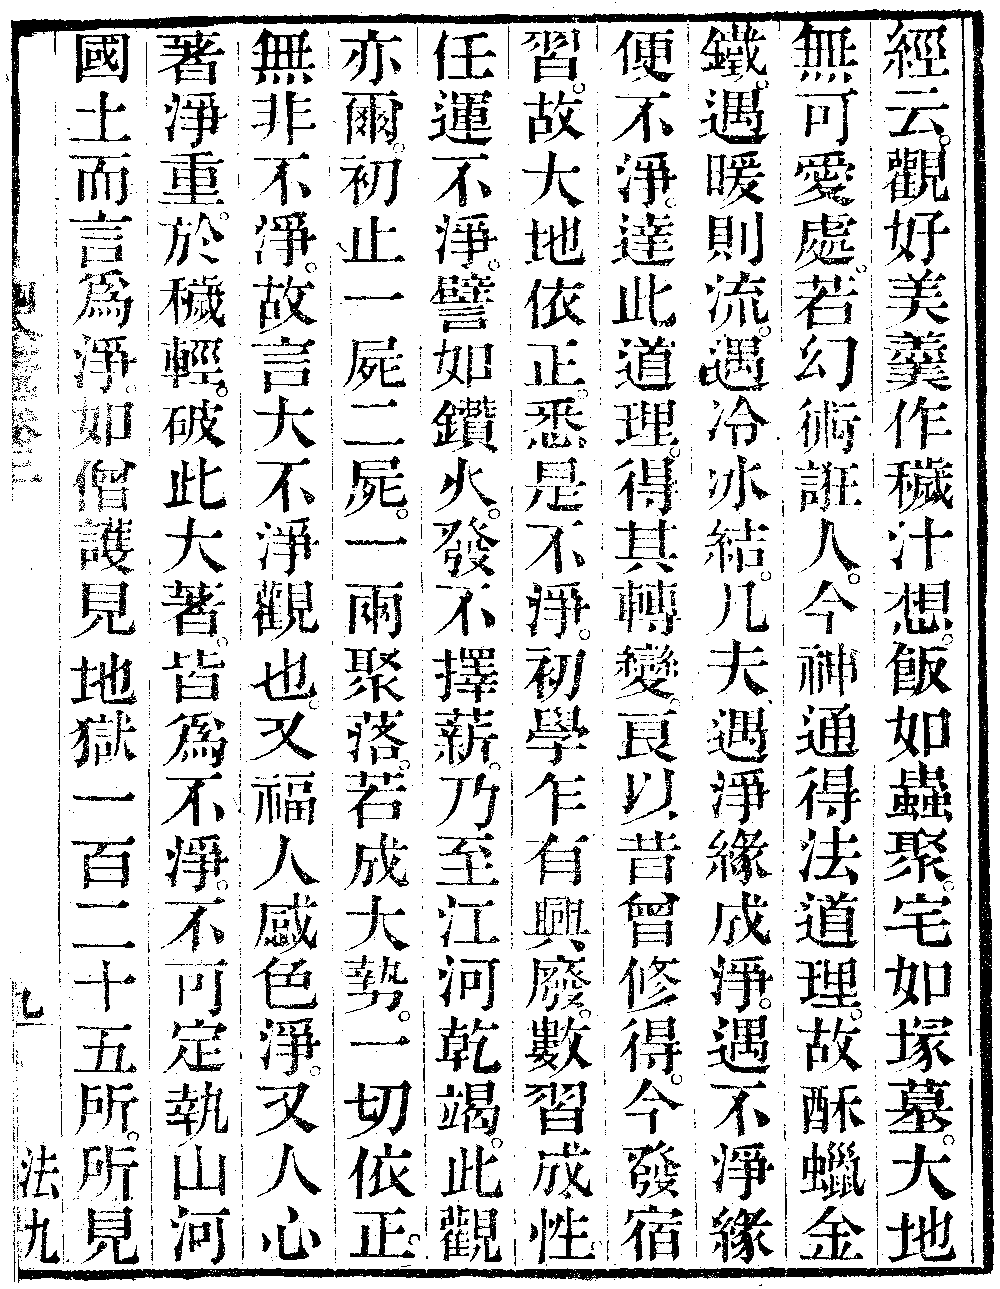 經云。觀好美羹作穢汁想。飯如蟲聚。宅如塚墓。大地
無可愛處。若幻術誑人。今神通得法道理。故酥蠟金
鐵。遇暖則流。遇冷氷結。凡夫遇淨緣成淨。遇不淨緣
便不淨。達此道理。得其轉變。良以昔曾修得。今發宿
習。故大地依正。悉是不淨。初學乍有興廢。數習成性。
任運不淨。譬如鑽火。發不擇薪。乃至江河乾竭。此觀
亦爾。初止一屍二屍。一兩聚落。若成大勢。一切依正。
無非不淨。故言大不淨觀也。又福人感色淨。又人心
著淨重。於穢輕。破此大著。皆為不淨。不可定執山河
國土而言爲淨。如僧護見地獄一百二十五所。所見
九
法九